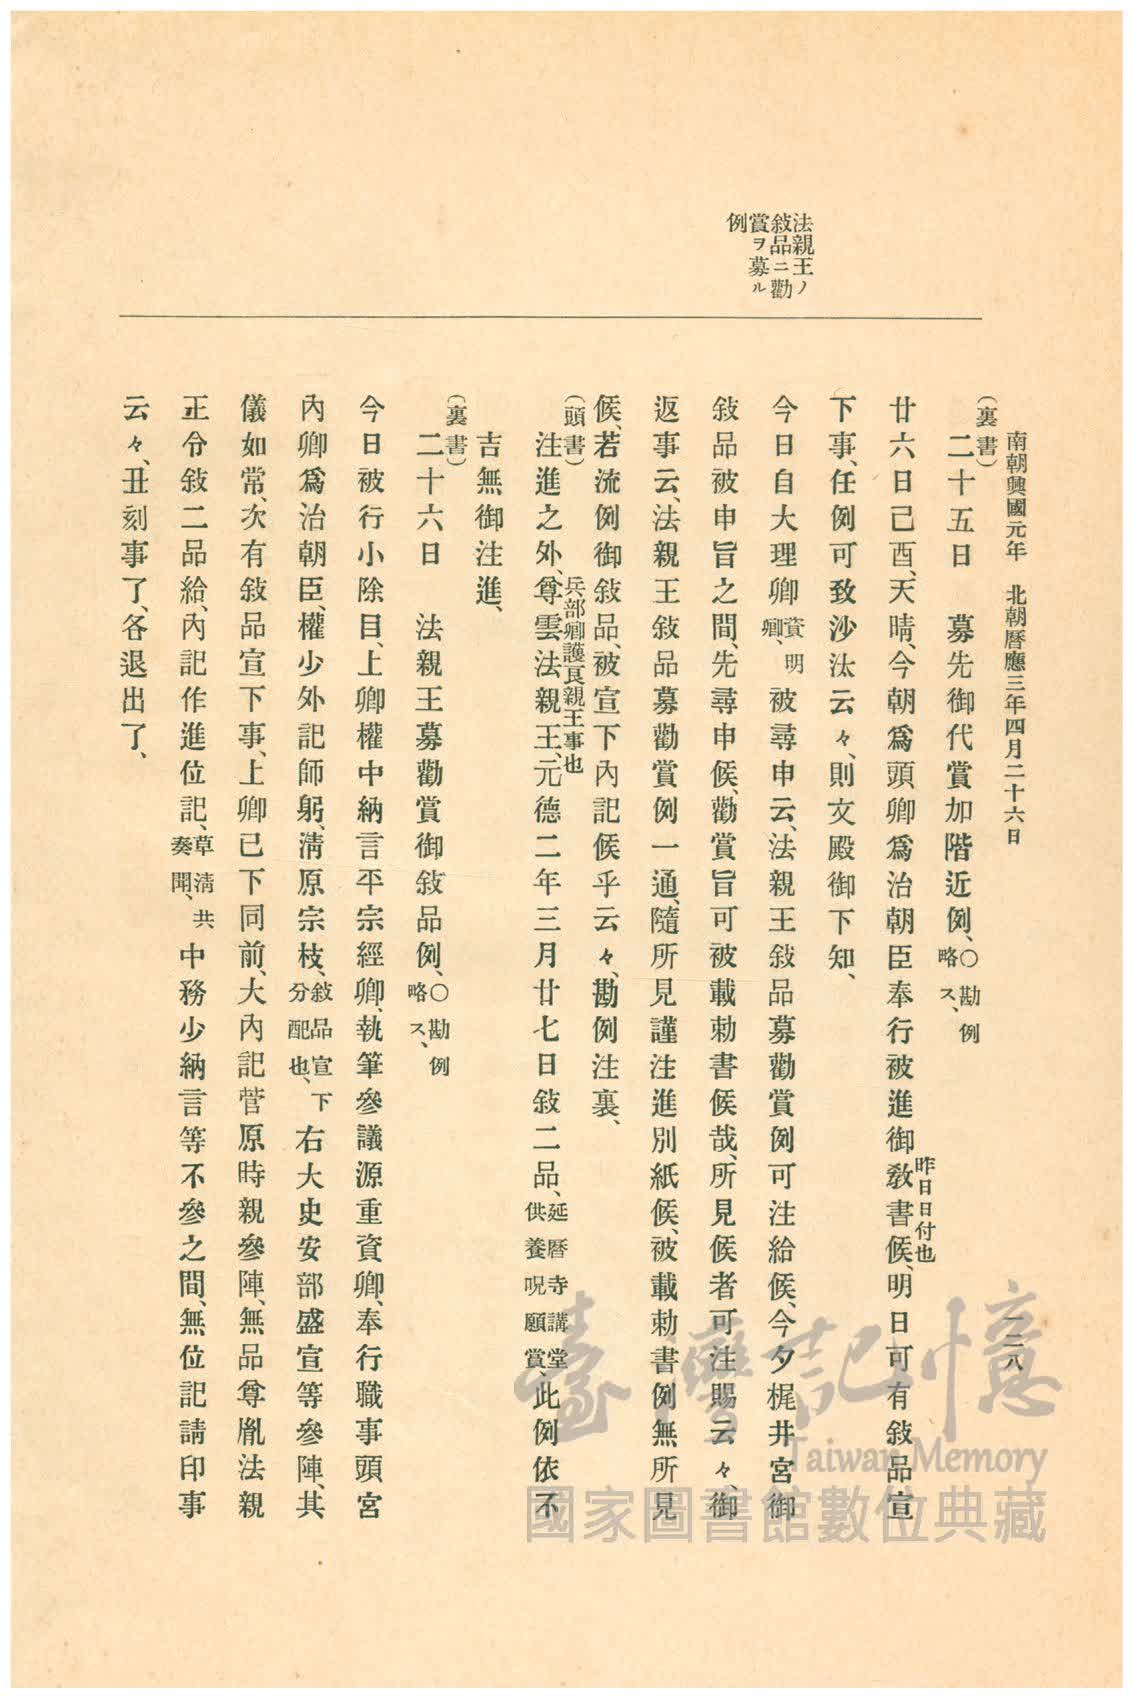 南朝興國元年　北朝曆應三年四月二十六日
一二八
法親王ノ
敍品ニ勸
賞ヲ募ル
例
（裏書）
二十五日　募先御代賞加階近例、○勘例略ス、
廿六日己酉、天晴、今朝爲頭卿爲治朝臣奉行被進御敎書候、昨日日付也明日可有敍品宣
下事、任例可致沙汰云々、則文殿御下知、
今日自大理卿資明卿、被尋申云、法親王敍品募勸賞例可注給候、今夕梶井宮御
敍品被申旨之間、先尋申候、勸賞旨可被載勅書候哉、所見候者可注賜云々、御
返事云、法親王敍品募勸賞例一通、隨所見謹注進別紙候、被載勅書例無所見
候、若流例御敍品、被宣下內記候乎云々、勘例注裏、
（頭書）
注進之外、尊雲法親王、兵部卿護良親王事也元德二年三月廿七日敍二品、延曆寺講堂供養呪願賞、此例依不
吉無御注進、
（裏書）
二十六日　法親王募勸賞御敍品例、○勘例略ス、
今日被行小除目、上卿權中納言平宗經卿、執筆參議源重資卿、奉行職事頭宮
內卿爲治朝臣、權少外記師躬、淸原宗枝、敍品宣下分配也、右大史安部盛宣等參陣、其
儀如常、次有敍品宣下事、上卿已下同前、大內記菅原時親參陣、無品尊胤法親
王令敍二品給、內記作進位記、草淸共奏聞、中務少納言等不參之間、無位記請印事
云々、丑刻事了、各退出了、
臺灣記憶
Taiwan Memory
國家圖書館數位典藏